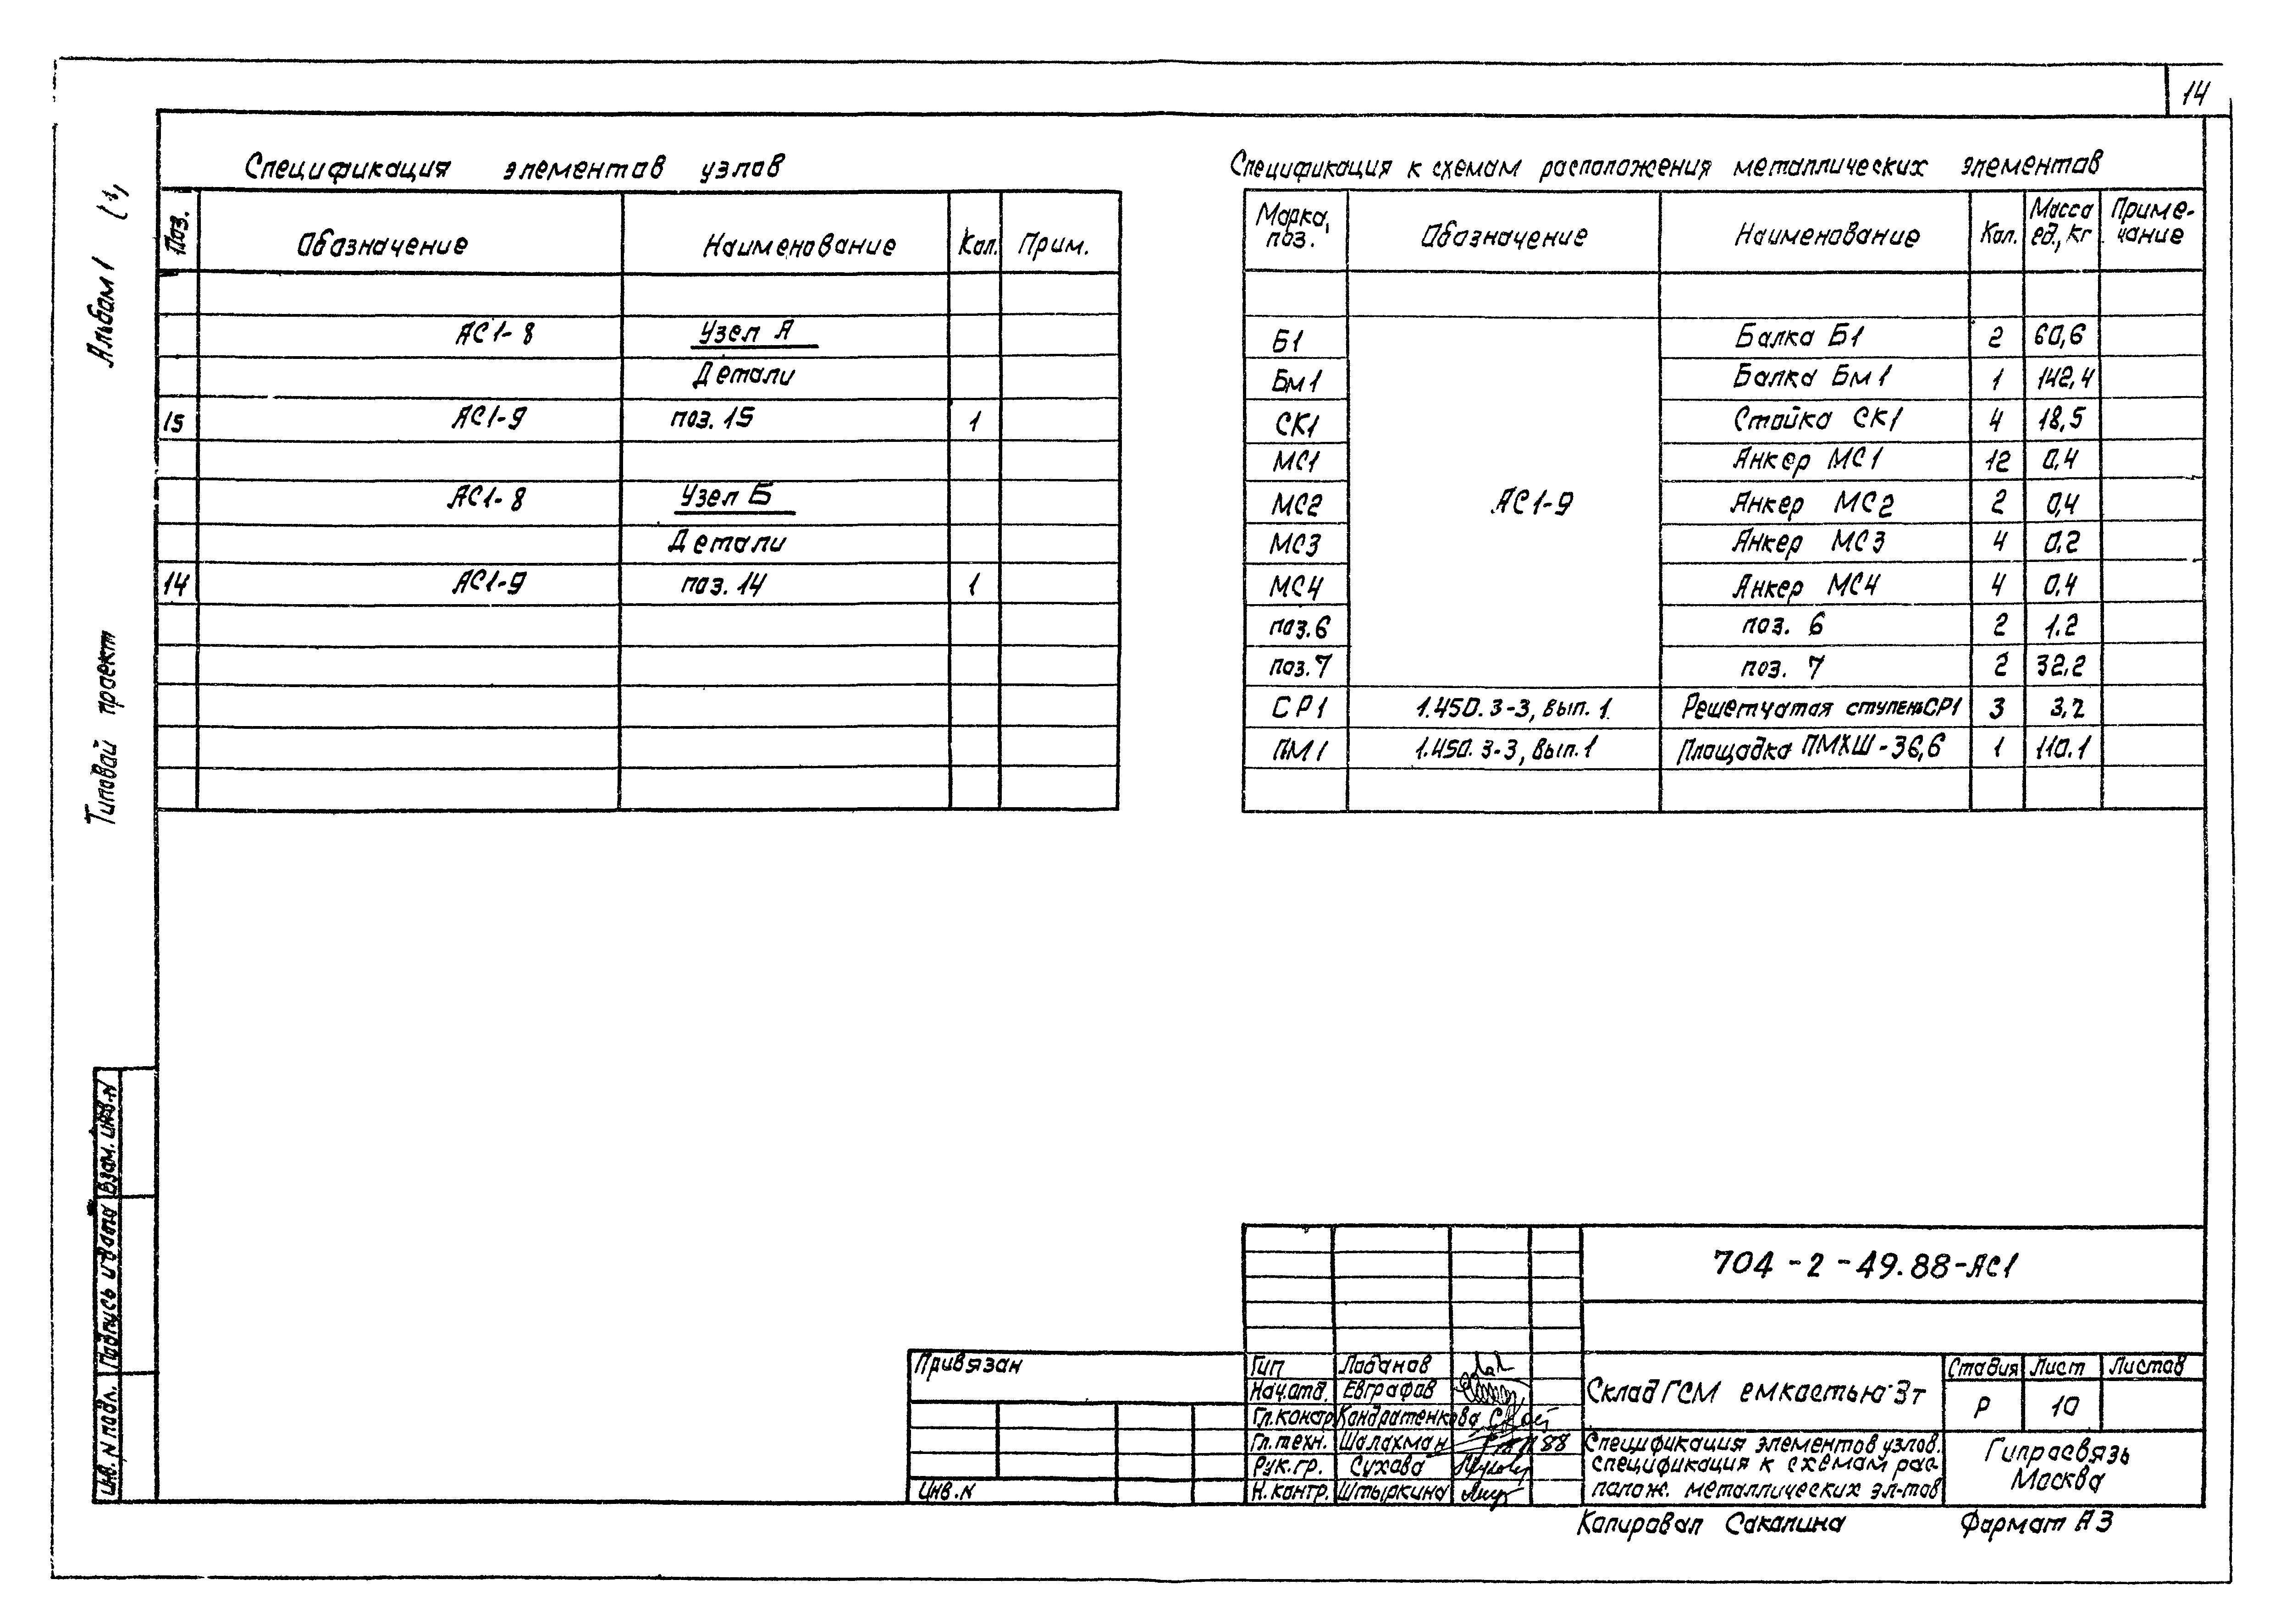 14
Альбом 1
Типовой проект
Спецификация элементов узлов
Поз. Обозначение Наименование Кол. Прим.
АС1-8 Узел А
Детали
15 АС1-9 поз. 15 1
АС1-8 Узел Б
Детали
14 АС1-9 поз. 14 1
Спецификация к схемам расположения металлических элементов
Марка, поз. Обозначение Наименование Кол. Масса ед., кг Приме-чание
Б1 Балка Б1 2 60,6
Бм1 Балка Бм1 1 142,4
СК1 Стойка СК1 4 18,5
МС1 Анкер МС1 12 0,4
МС2 АС1-9 Анкер МС2 2 0,4
МС3 Анкер МС3 4 0,2
МС4 Анкер МС4 4 0,4
поз.6 поз. 6 2 1.2
поз.7 поз. 7 2 32,2
СР1 1.450.3-3, вып. 1 Решетчатая ступень СР1 3 3,2
ПМ1 1.450.3-3, вып. 1 Площадка ПМХШ-36,6 1 110.1
Взам. инв. N
Подпись и дата
Инв. N подл.
Привязан
Инв. N
704-2-49.88-АС1
Гип Лобанов
Нач.отд. Евграфов
Гл.констр Кондратенкова
Гл.техн. Шалахман 88
Рук.гр. Сухова
Н.контр. Штыркина
Склад ГСМ емкостью 3т
Стадия Лист Листов
Р 10
Спецификация элементов узлов.
Спецификация к схемам рас-
полож. металлических эл-тов
Гипросвязь
Москва
Копировал Соколина Формат А3